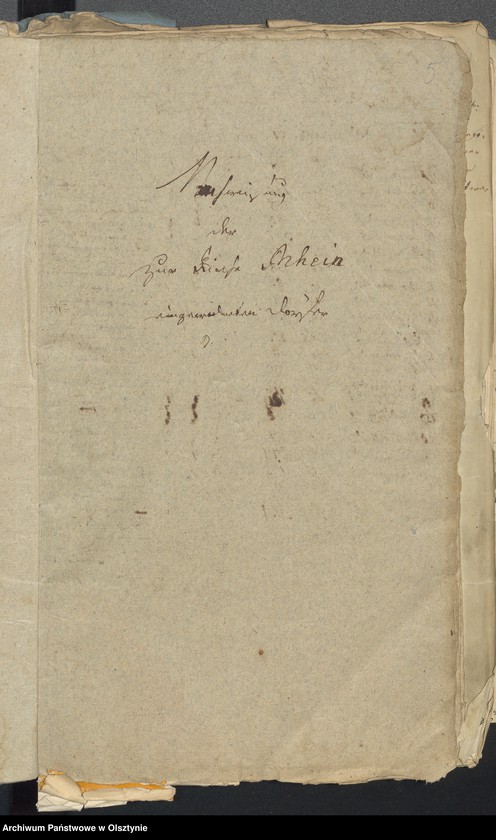 5
der
zur Kirche Rhein
eingewidmeten Dörfer
Archiwum Państwowe w Olsztynie